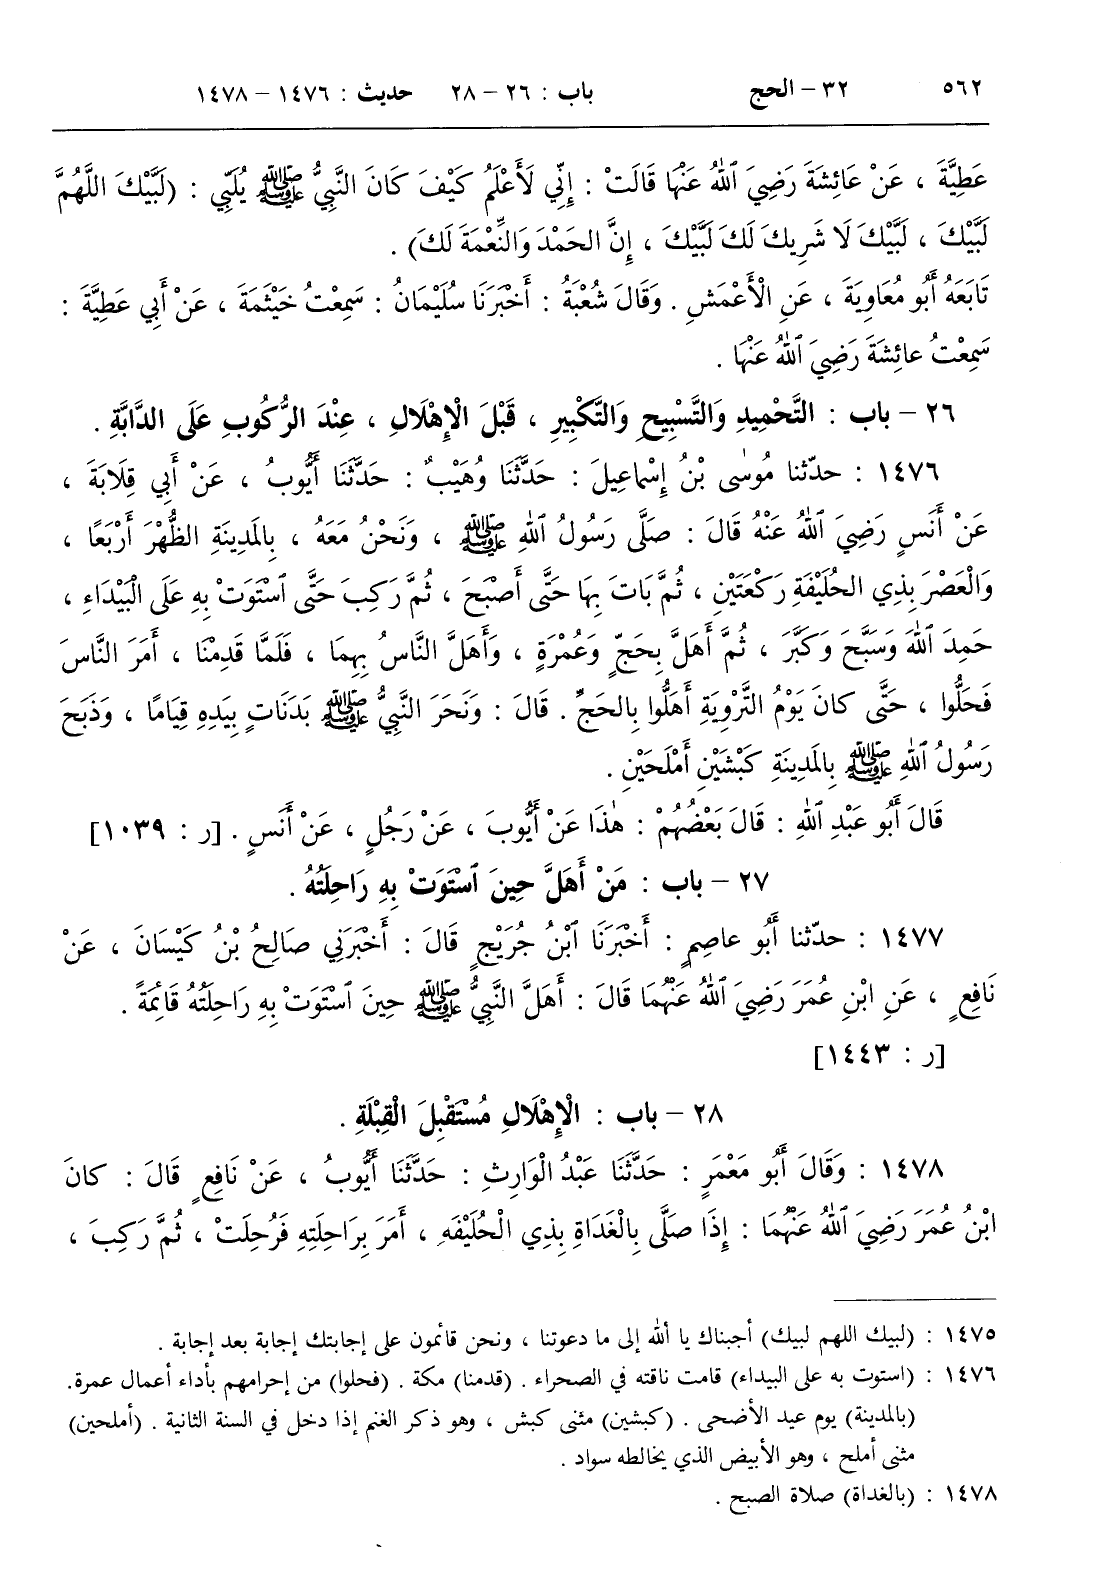 ٥٦٢ ٣٢ – الحج باب : ٢٦ – ٢٨ حديث : ١٤٧٦ – ١٤٧٨
عَطِيَّةَ ، عَنْ عَائِشَةَ رَضِيَ ٱللهُ عَنْهَا قَالَتْ : إِنِّي لَأَعْلَمُ كَيْفَ كَانَ النَّبِيُّ ﷺ يُلَبِّي : (لَبَّيْكَ اللَّهُمَّ
لَبَّيْكَ ، لَبَّيْكَ لَا شَرِيكَ لَكَ لَبَّيْكَ ، إِنَّ الحَمْدَ وَالنِّعْمَةَ لَكَ) .
تَابَعَهُ أَبُو مُعَاوِيَةَ ، عَنِ الْأَعْمَشِ . وَقَالَ شُعْبَةُ : أَخْبَرَنَا سُلَيْمَانُ : سَمِعْتُ خَيْثَمَةَ ، عَنْ أَبِي عَطِيَّةَ :
سَمِعْتُ عائِشَةَ رَضِيَ ٱللهُ عَنْهَا .
٢٦ – باب : التَّحْمِيدِ وَالتَّسْبِيحِ وَالتَّكْبِيرِ ، قَبْلَ الْإِهْلَالِ ، عِنْدَ الرُّكُوبِ عَلَى الدَّابَّةِ .
١٤٧٦ : حدّثنا مُوسٰى بْنُ إِسْمَاعِيلَ : حَدَّثَنَا وُهَيْبٌ : حَدَّثَنَا أَيُّوبُ ، عَنْ أَبِي قِلَابَةَ ،
عَنْ أَنَسٍ رَضِيَ ٱللهُ عَنْهُ قَالَ : صَلَّى رَسُولُ ٱللهِ ﷺ ، وَنَحْنُ مَعَهُ ، بِالمَدِينَةِ الظُّهْرَ أَرْبَعًا ،
وَالْعَصْرَ بِذِي الحُلَيْفَةِ رَكْعَتَيْنِ ، ثُمَّ بَاتَ بِهَا حَتَّى أَصْبَحَ ، ثُمَّ رَكِبَ حَتَّى ٱسْتَوَتْ بِهِ عَلَى الْبَيْدَاءِ ،
حَمِدَ ٱللهَ وَسَبَّحَ وَكَبَّرَ ، ثُمَّ أَهَلَّ بِحَجٍّ وَعُمْرَةٍ ، وَأَهَلَّ النَّاسُ بِهِمَا ، فَلَمَّا قَدِمْنَا ، أَمَرَ النَّاسَ
فَحَلُّوا ، حَتَّى كانَ يَوْمُ التَّرْوِيَةِ أَهَلُّوا بِالحَجِّ . قَالَ : وَنَحَرَ النَّبِيُّ ﷺ بَدَنَاتٍ بِيَدِهِ قِيَامًا ، وَذَبَحَ
رَسُولُ ٱللهِ ﷺ بِالمَدِينَةِ كَبْشَيْنِ أَمْلَحَيْنِ .
قَالَ أَبُو عَبْدِ ٱللهِ : قَالَ بَعْضُهُمْ : هٰذَا عَنْ أَيُّوبَ ، عَنْ رَجُلٍ ، عَنْ أَنَسٍ . [ر : ١٠٣٩]
٢٧ – باب : مَنْ أَهَلَّ حِينَ ٱسْتَوَتْ بِهِ رَاحِلَتُهُ .
١٤٧٧ : حدّثنا أَبُو عاصِمٍ : أَخْبَرَنَا ٱبْنُ جُرَيْجٍ قَالَ : أَخْبَرَنِي صَالِحُ بْنُ كَيْسَانَ ، عَنْ
نَافِعٍ ، عَنِ ابْنِ عُمَرَ رَضِيَ ٱللهُ عَنْهُمَا قَالَ : أَهَلَّ النَّبِيُّ ﷺ حِينَ ٱسْتَوَتْ بِهِ رَاحِلَتُهُ قَائِمَةً .
[ر : ١٤٤٣]
٢٨ – باب : الْإِهْلَالِ مُسْتَقْبِلَ الْقِبْلَةِ .
١٤٧٨ : وَقَالَ أَبُو مَعْمَرٍ : حَدَّثَنَا عَبْدُ الْوَارِثِ : حَدَّثَنَا أَيُّوبُ ، عَنْ نَافِعٍ قَالَ : كانَ
ابْنُ عُمَرَ رَضِيَ ٱللهُ عَنْهُمَا : إِذَا صَلَّى بِالْغَدَاةِ بِذِي الْحُلَيْفَهِ ، أَمَرَ بِرَاحِلَتِهِ فَرُحِلَتْ ، ثُمَّ رَكِبَ ،
١٤٧٥ : (لبيك اللهم لبيك) أجبناك يا ألله إلى ما دعوتنا ، ونحن قائمون على إجابتك إجابة بعد إجابة .
١٤٧٦ : (استوت به على البيداء) قامت ناقته في الصحراء . (قدمنا) مكة . (فحلوا) من إحرامهم بأداء أعمال عمرة.
(بالمدينة) يوم عيد الأضحى . (كبشين) مثنى كبش ، وهو ذكر الغنم إذا دخل في السنة الثانية . (أملحين)
مثنى أملح ، وهو الأبيض الذي يخالطه سواد .
١٤٧٨ : (بالغداة) صلاة الصبح .